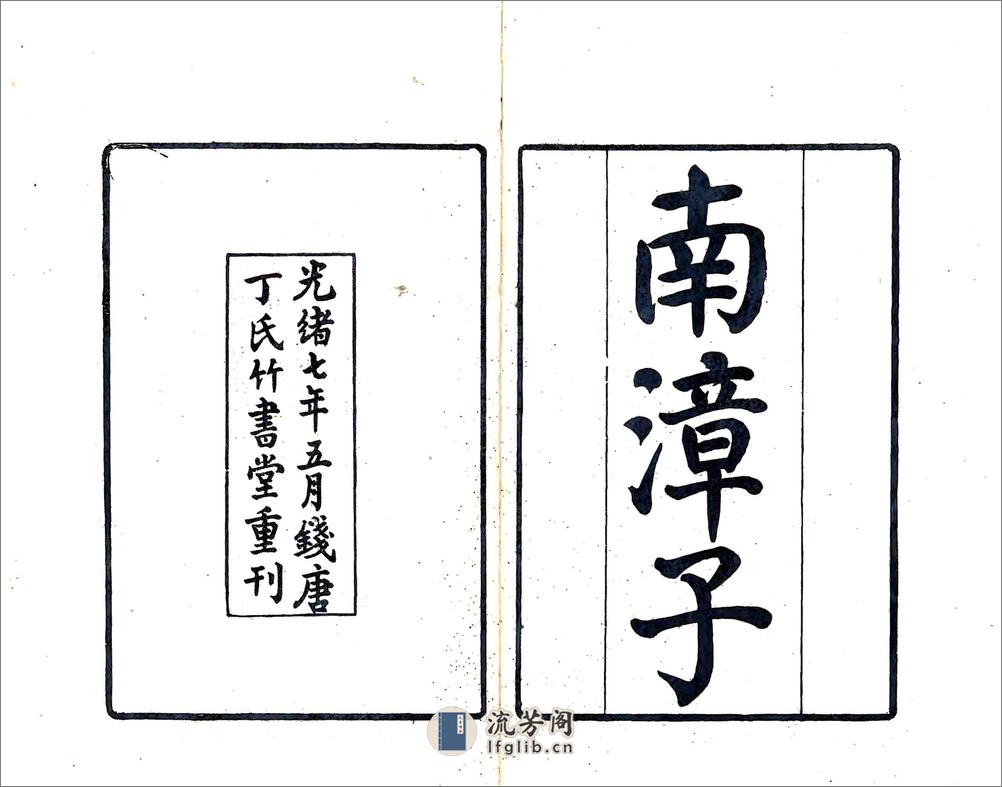 南漳子
光緒七年五月錢唐
丁氏竹書堂重刊
流芳阁
lfglib.cn